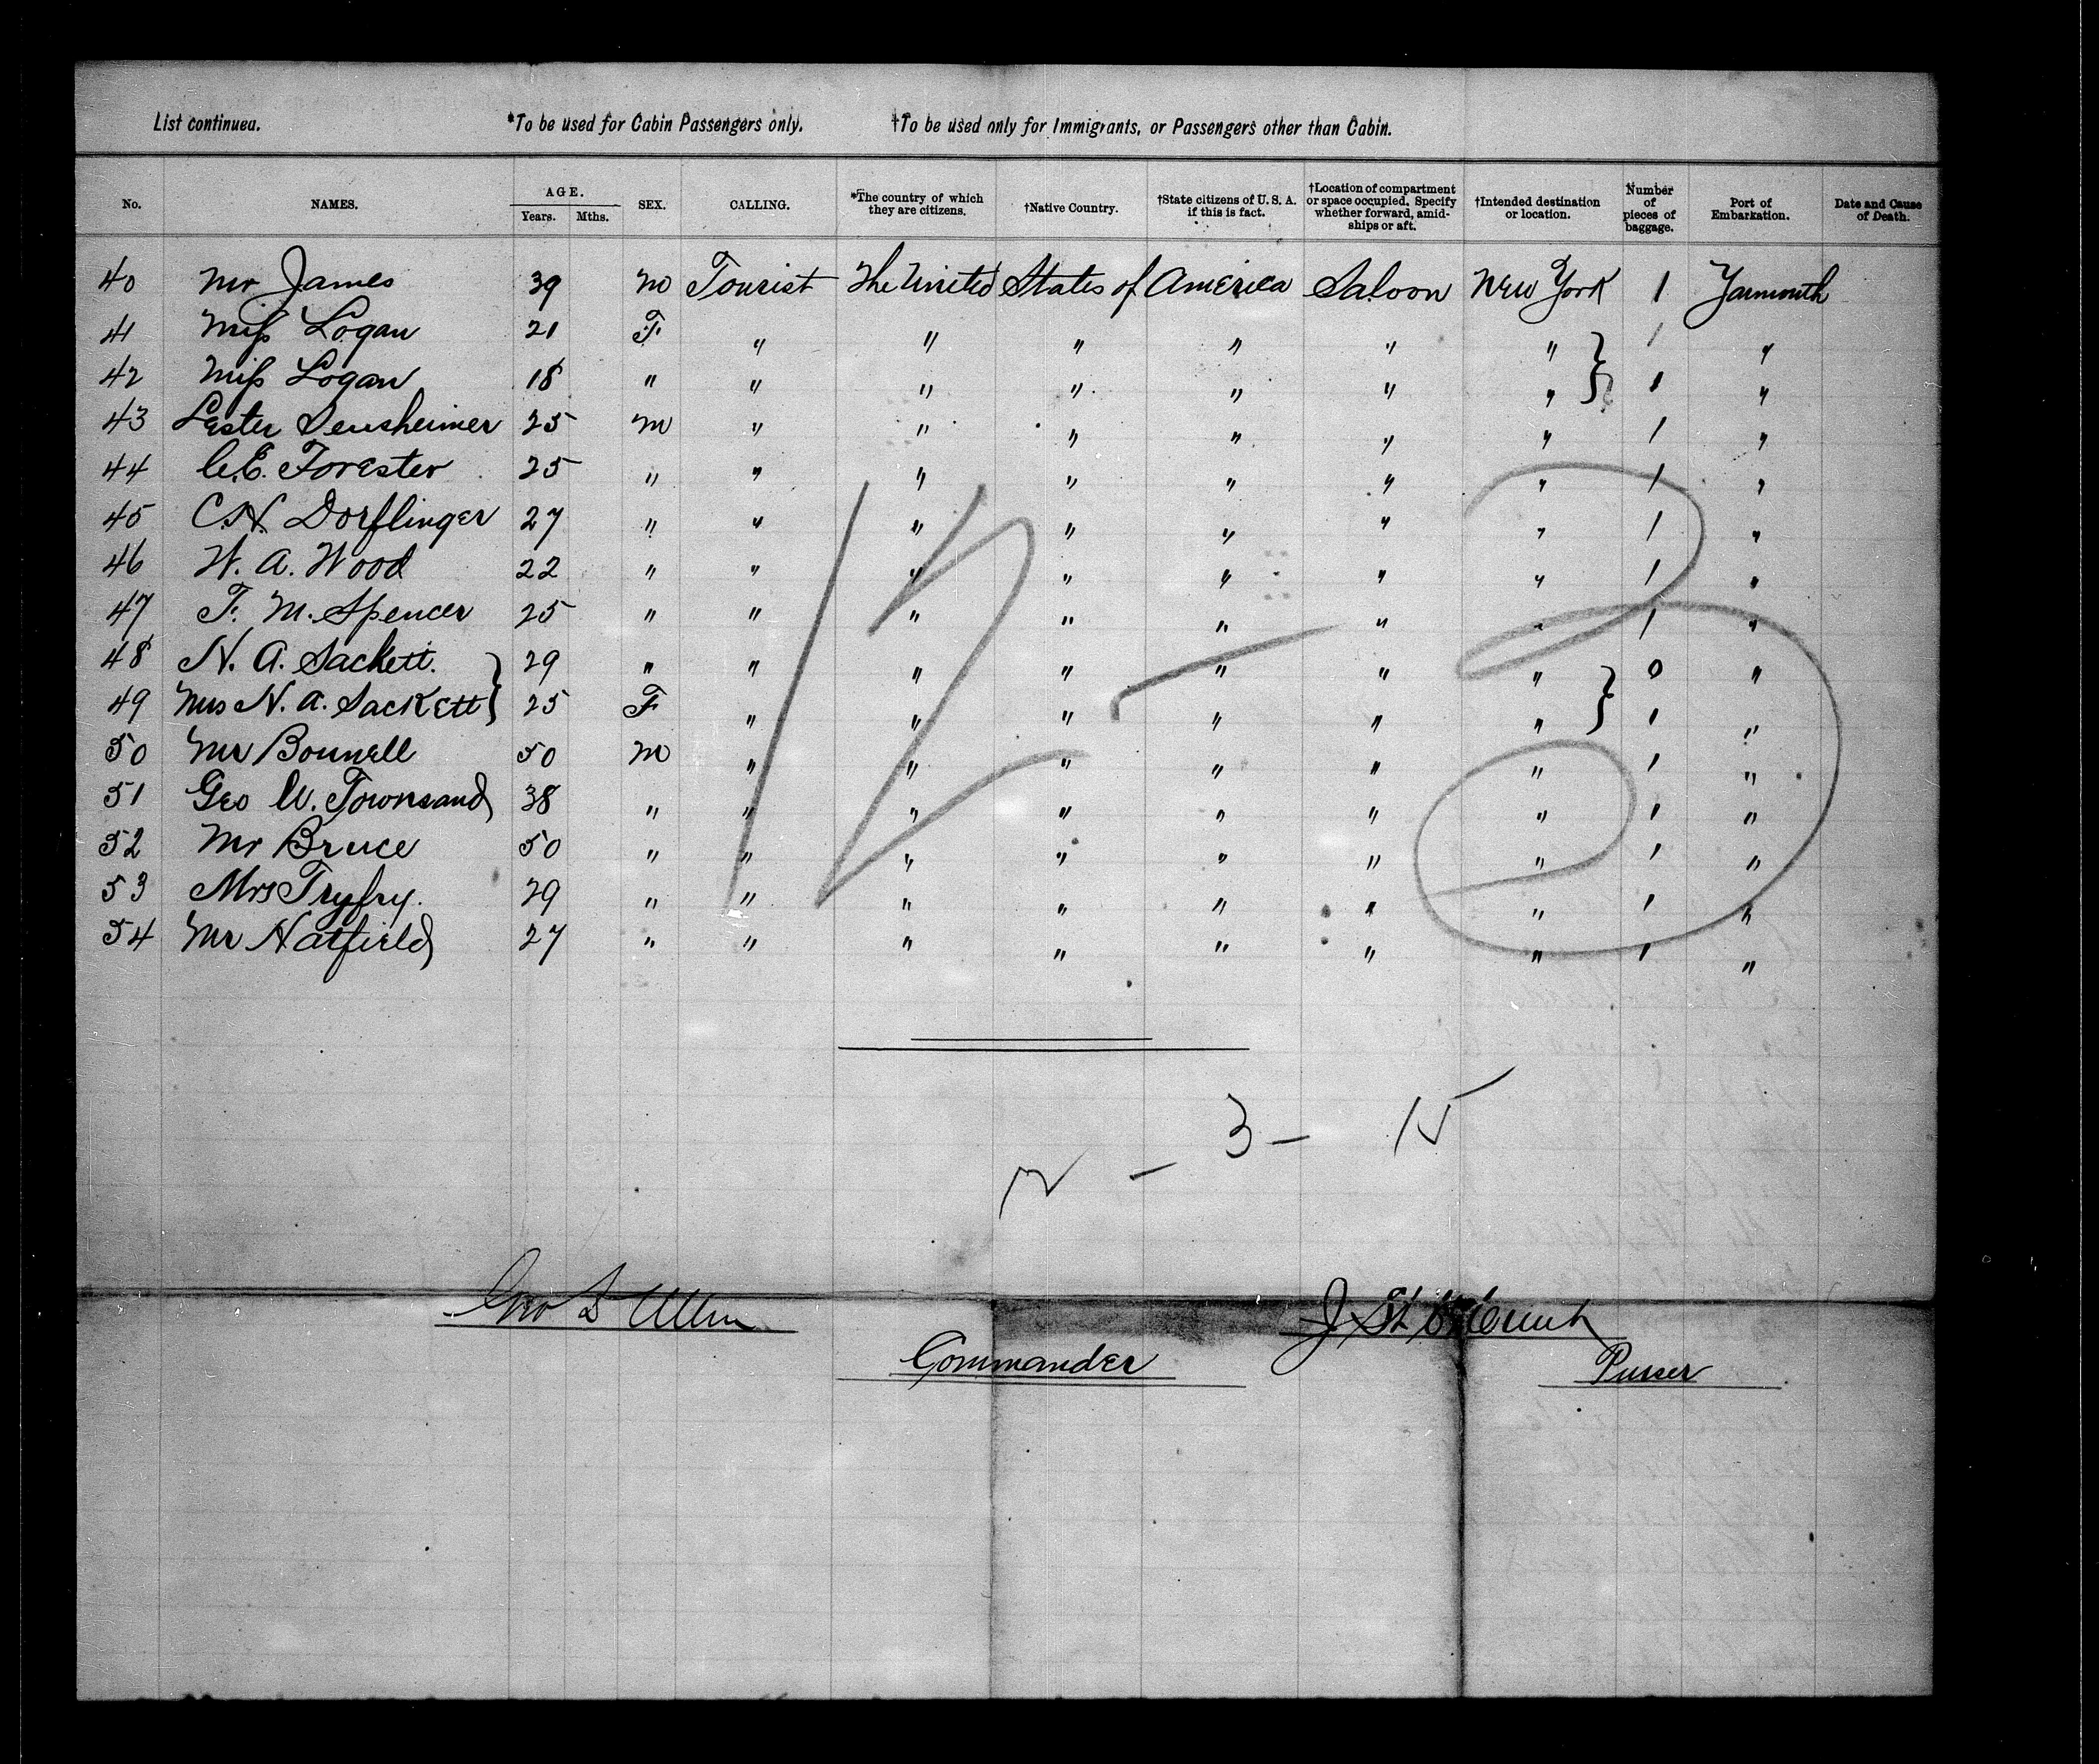 List continued. *To be used for Cabin Passengers only. †To be used only for Immigrants, or Passengers other than Cabin.
No. NAMES. AGE. Years. Mths. SEX. CALLING. *The country of which they are citizens. †Native Country. †State citizens of U. S. A. if this is fact. †Location of compartment or space occupied. Specify whether forward, amidships or aft. †Intended destination or location. Number of pieces of baggage. Port of Embarkation. Date and Cause of Death.
40 Mr James 39 M Tourist The United States of America Saloon New York 1 Yarmouth
41 Miss Logan 21 F " " " " " " 1 "
42 Miss Logan 18 " " " " " " " 1 "
43 Lester 25 M " " " " " " 1 "
44 C.E. Forester 25 " " " " " " " 1 "
45 C.H. Dorflinger 27 " " " " " " " 1 "
46 W. A. Wood 22 " " " " " " " 1 "
47 F. M. Spencer 25 " " " " " " " 1 "
48 N. A. Sackett. 29 " " " " " " " 0 "
49 Mrs N. A. Sackett 25 F " " " " " " 1 "
50 Mr Bonnell 50 M " " " " " " 1 "
51 Geo W. Townsand 38 " " " " " " " 1 "
52 Mr Bruce 50 " " " " " " " 1 "
53 Mrs Tryfry. 29 " " " " " " " 1 "
54 Mr Hatfield 27 " " " " " " " 1 "
125
3 – 15
Commander
Purser